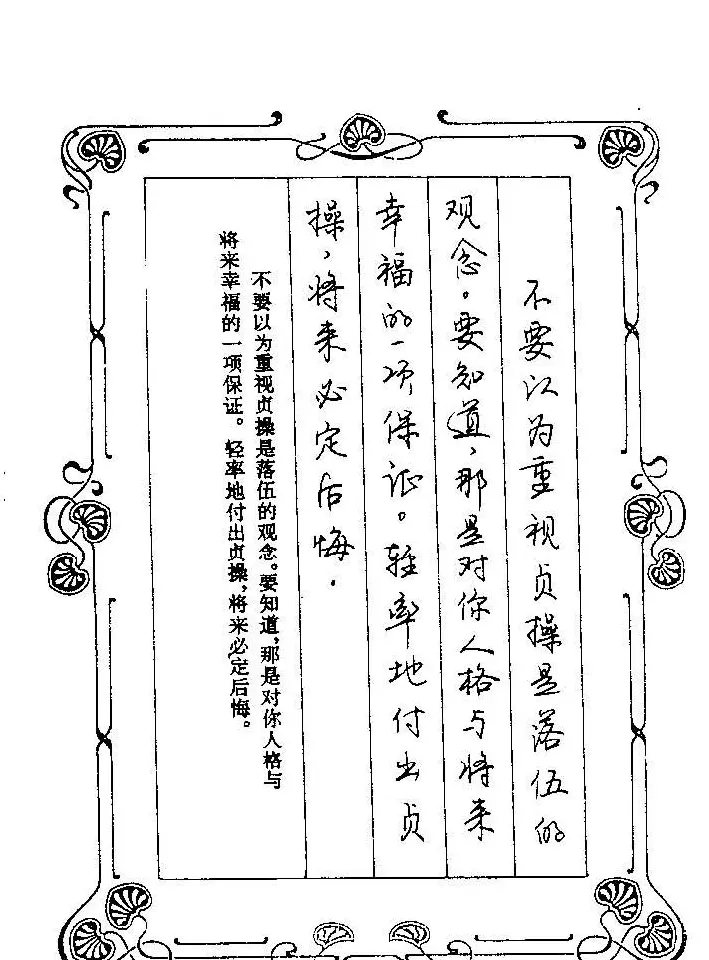 不要以为重视贞操是落伍的
观念。要知道，那是对你人格与将来
幸福的一项保证。轻率地付出贞
操，将来必定后悔．
不要以为重视贞操是落伍的观念。要知道，那是对你人格与
将来幸福的一项保证。轻率地付出贞操，将来必定后悔。